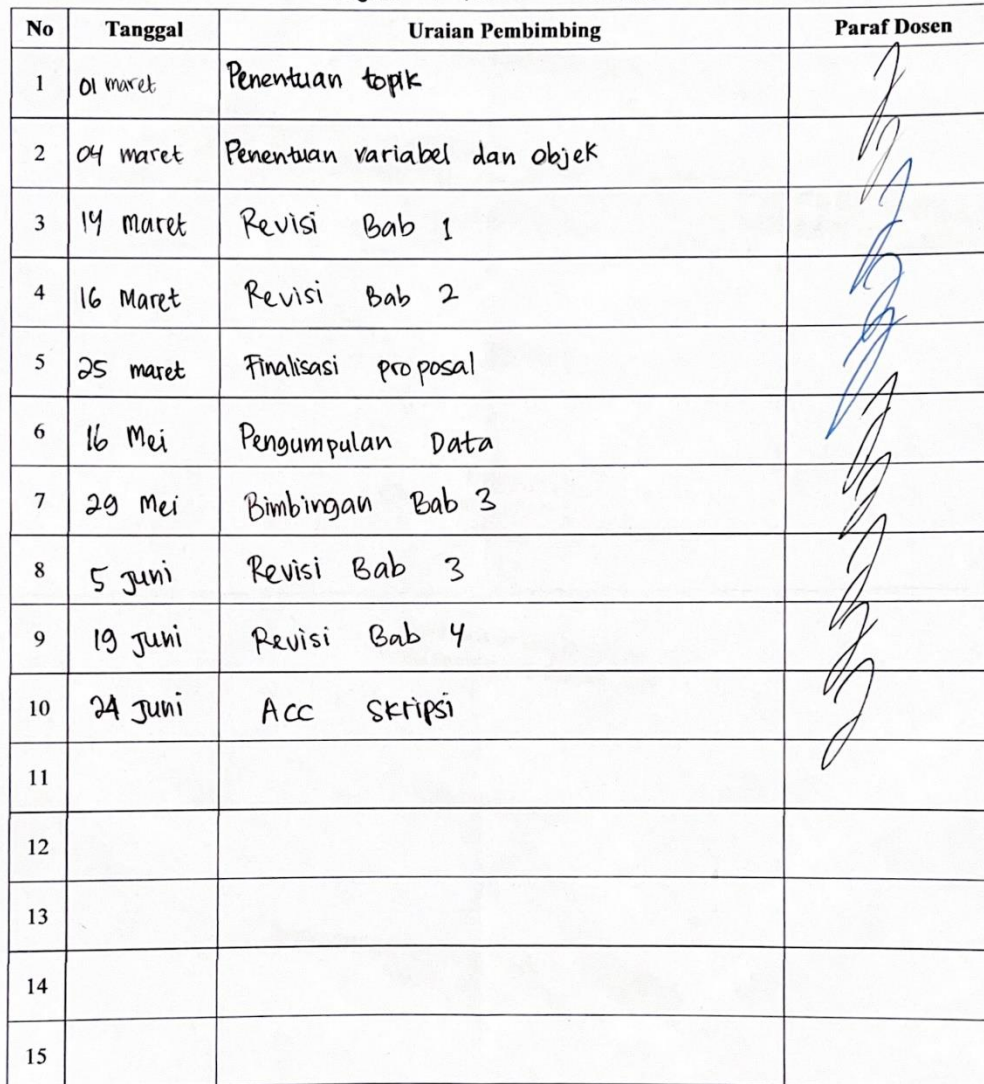 No Tanggal Uraian Pembimbing Paraf Dosen
1 01 maret Penentuan topik
2 04 maret Penentuan variabel dan objek
3 14 maret Revisi Bab 1
4 16 Maret Revisi Bab 2
5 25 maret Finalisasi proposal
6 16 Mei Pengumpulan Data
7 29 Mei Bimbingan Bab 3
8 5 Juni Revisi Bab 3
9 19 Juni Revisi Bab 4
10 24 Juni Acc Skripsi
11
12
13
14
15